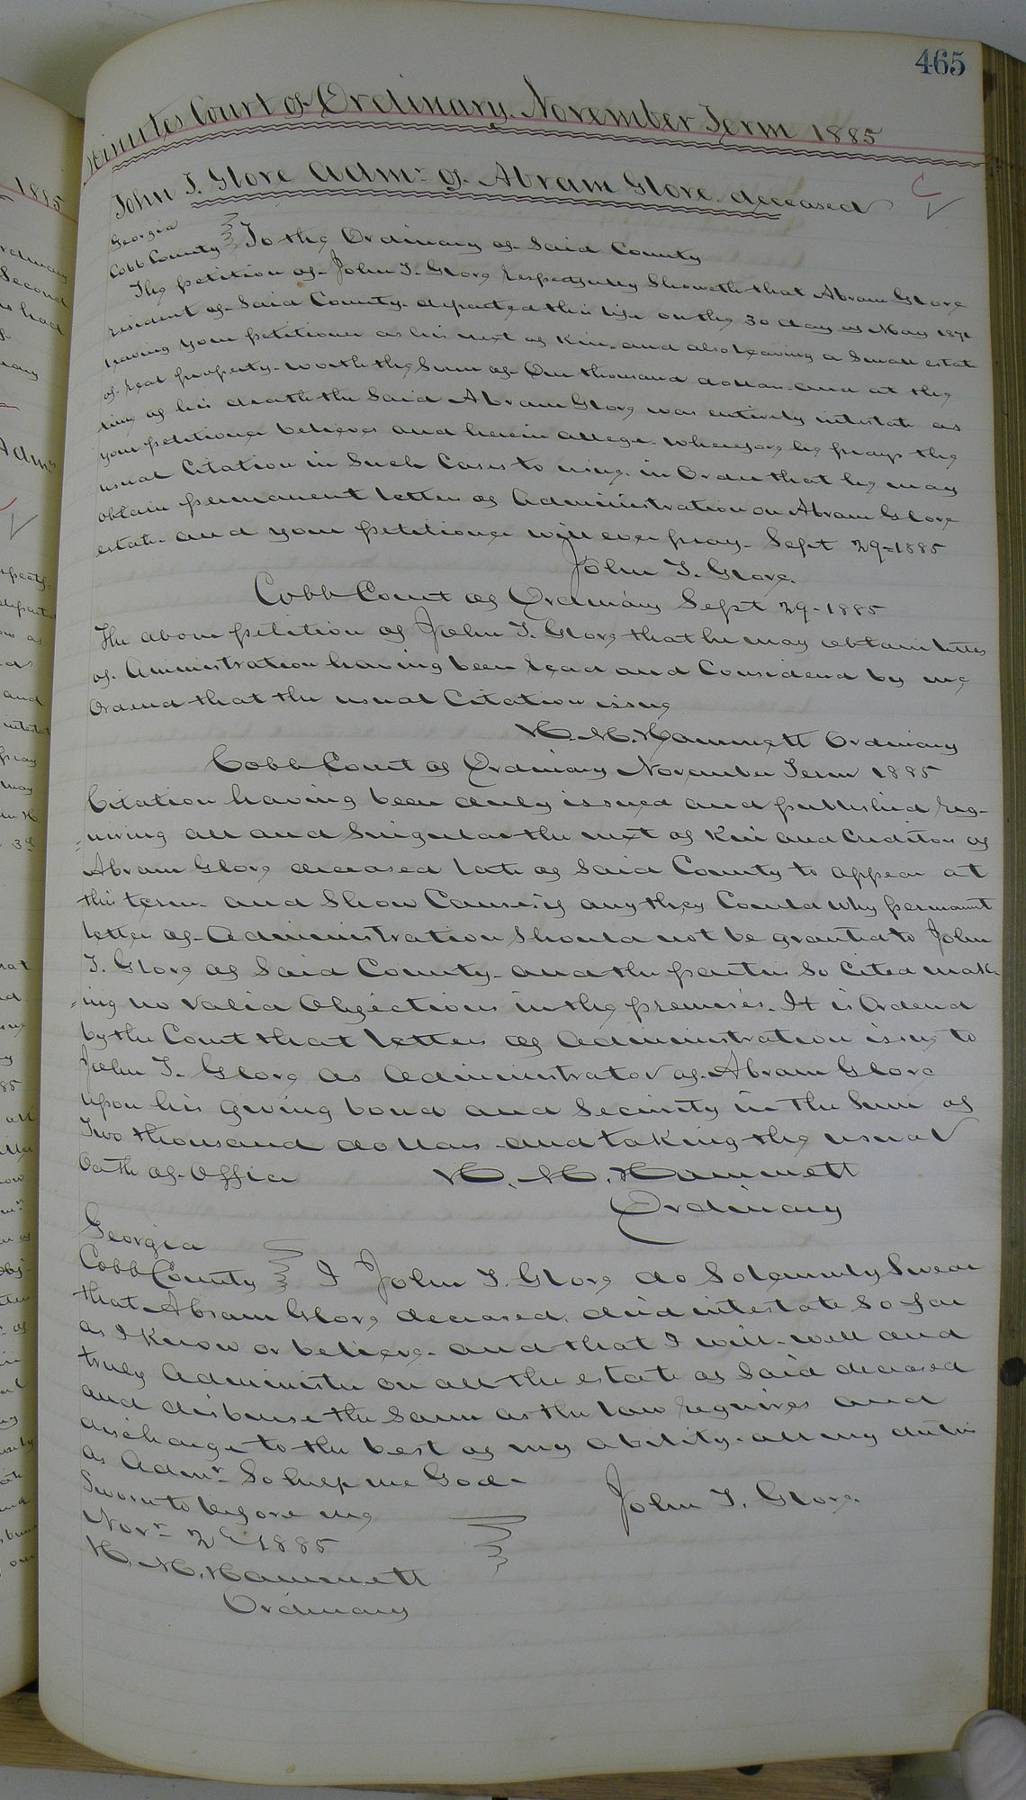 465
Minutes Court of Ordinary, November Term 1885
John T. Glore Admr of Abram Glore deceased
Georgia
Cobb County To the Ordinary of Said County
The petition of John T. Glore respectfully Showeth that Abram Glore
resident of Said County departed this life on the 30 day of May
leaving your petitioner as his next of Kin and also leaving a Small estate
of real property worth the Sum of One thousand dollars and at the
time of his death the Said Abram Glore was entirely intestate as
your petitioner believes and herein allege. Wherefore he prays the
usual Citation in Such Cases to issue in Order that he may
obtain permanent letters of Administration on Abram Glore
estate and your petitioner will ever pray. Sept 29-1885
John T. Glore.
Cobb Court of Ordinary Sept 29-1885
The above petition of John T. Glore that he may obtain letters
of Amministration having been read and Considerd by me
Ordered that the usual Citation issue
H. M. Hammett Ordinary
Cobb Court of Ordinary November Term 1885
Citation having been duly issued and published req-
=uiring all and Singular the next of Kin and Creditors of
Abram Glore deceased late of Said County to appear at
this term and Show Cause if any they Could why permanent
letters of Administration Should not be granted to John
T. Glore of Said County and the parties So Cited mak
=ing no valid Objections in the premises. It is Ordered
by the Court that letters of Administration issue to
John T. Glore as Administrator of Abram Glore
upon his giving bond and Security in the Sum of
Two thousand dollars and taking the usual
Oath of Office H. M. Hammett
Ordinary
Georgia
Cobb County I John T. Glore do Solemnly Swear
that Abram Glore deceased, died intestate So far
as I know or believe and that I will well and
truly Administer on all the estate of Said deceased
and disburse the Same as the law requires and
discharge to the best of my ability all my duties
as Admr So help me God.
Sworn to before me John T. Glore.
Novr 2d 1885
H. M. Hammett
Ordinary